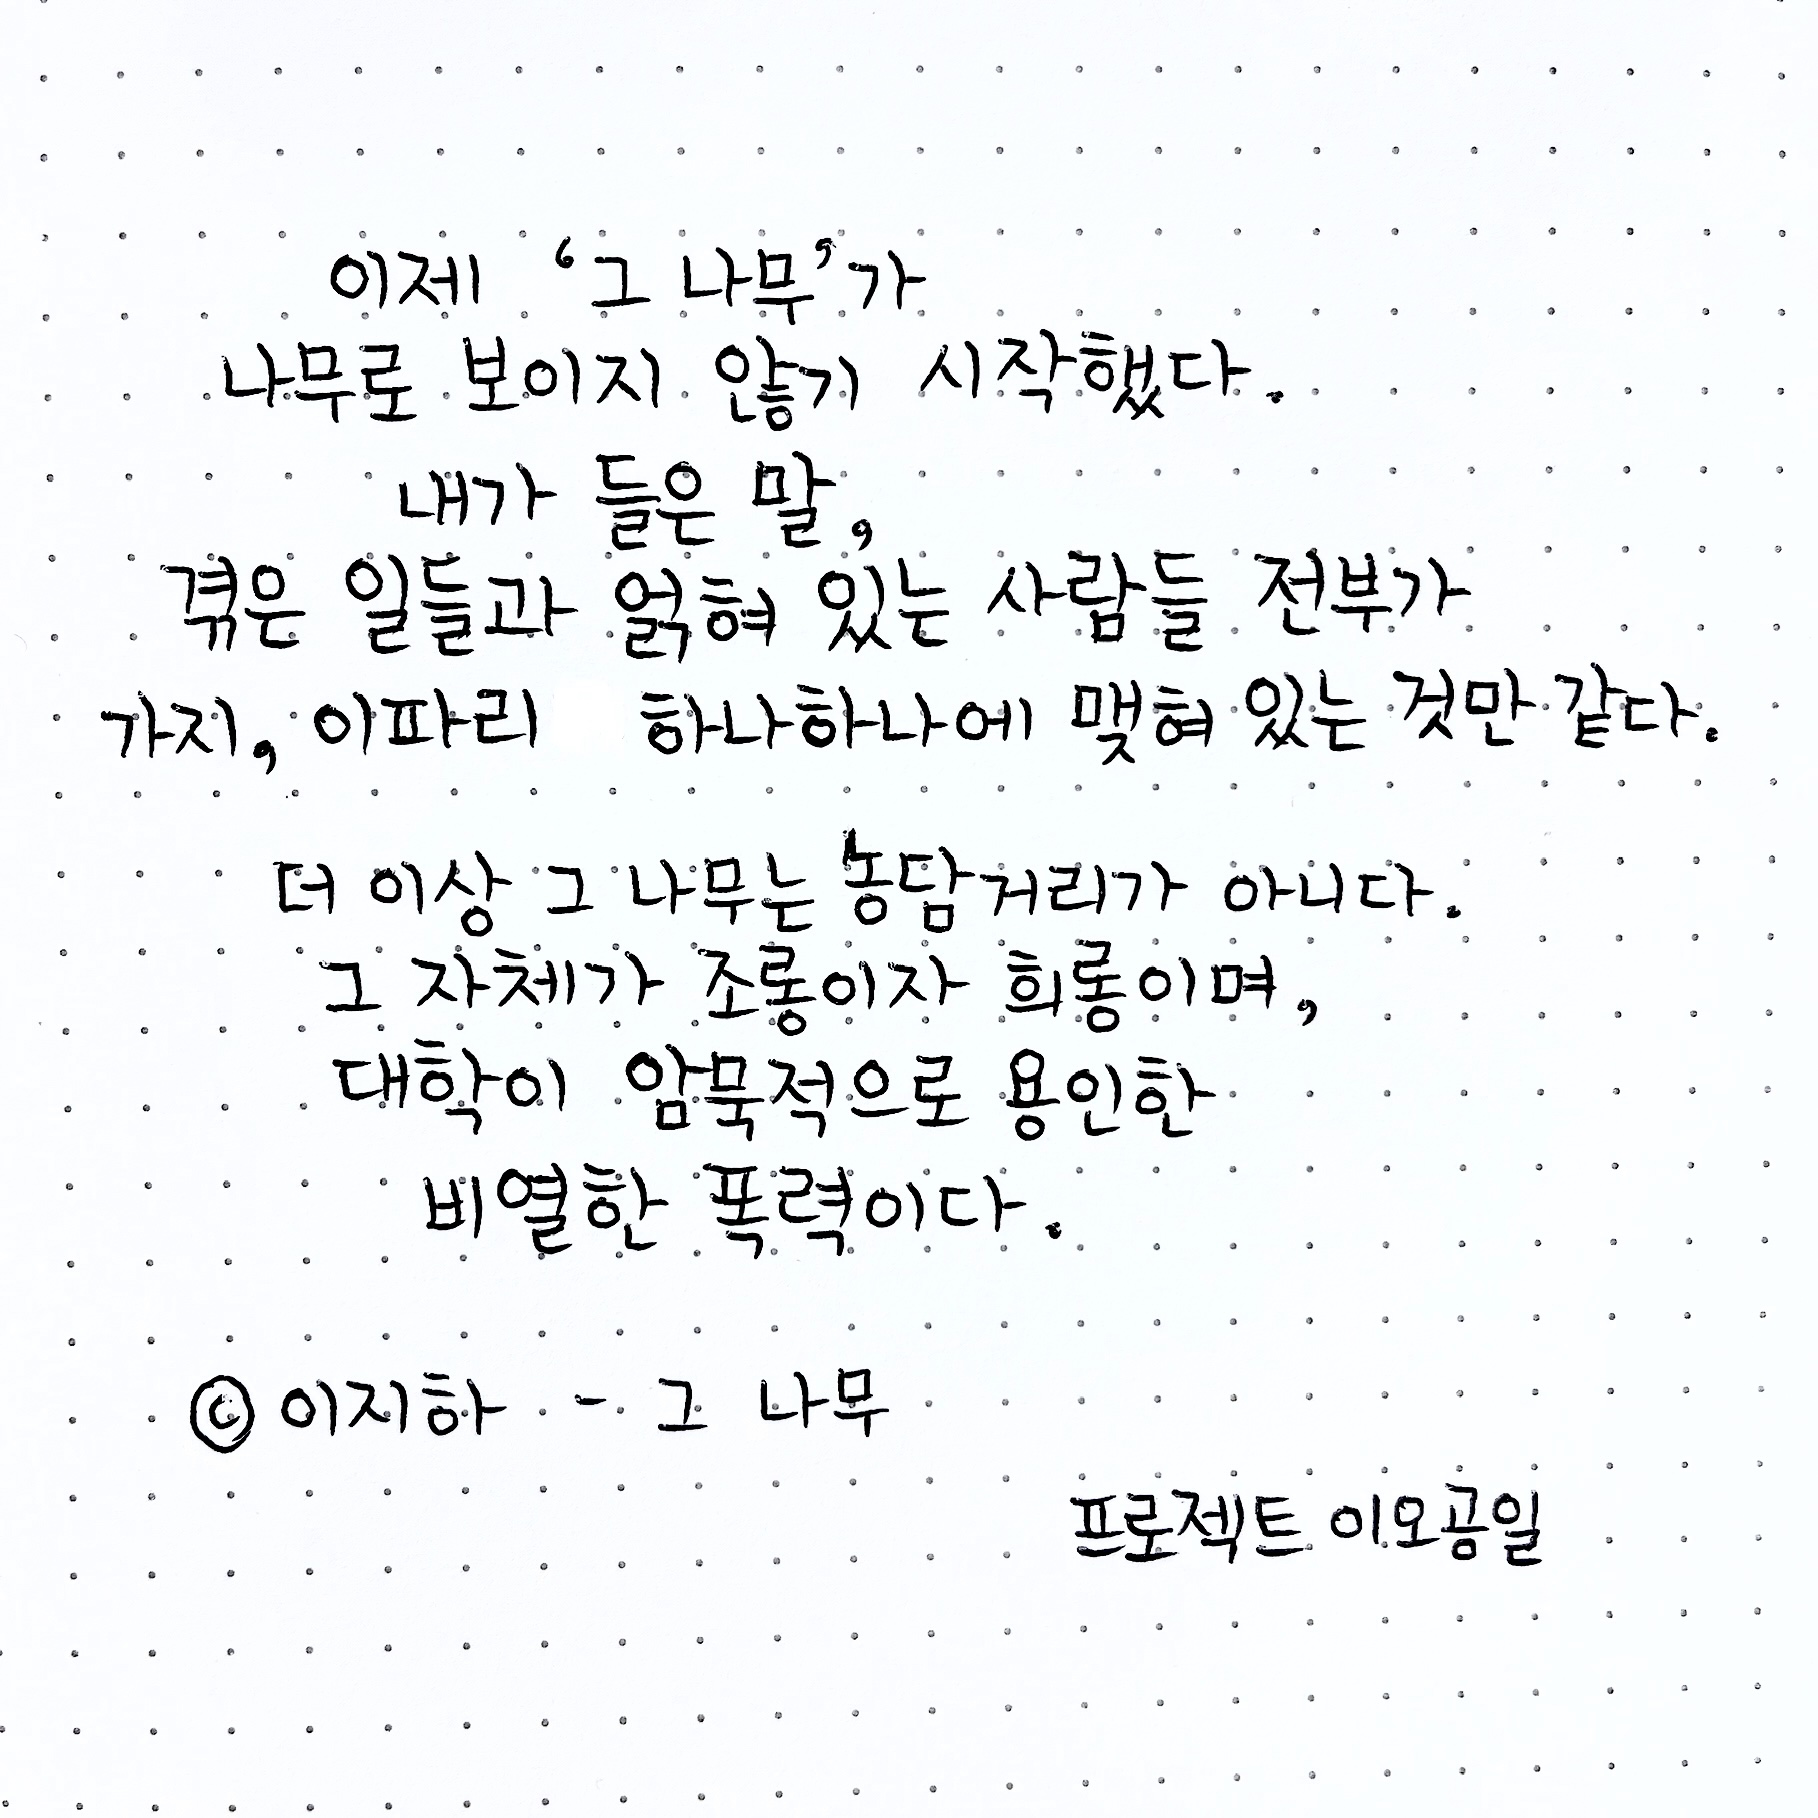 이제 ‘그 나무’가
나무로 보이지 않기 시작했다.
내가 들은 말,
겪은 일들과 얽혀 있는 사람들 전부가
가지, 이파리 하나하나에 맺혀 있는 것만 같다.
더 이상 그 나무는 농담거리가 아니다.
그 자체가 조롱이자 희롱이며,
대학이 암묵적으로 용인한
비열한 폭력이다.
© 이지하 - 그 나무
프로젝트 이오공일